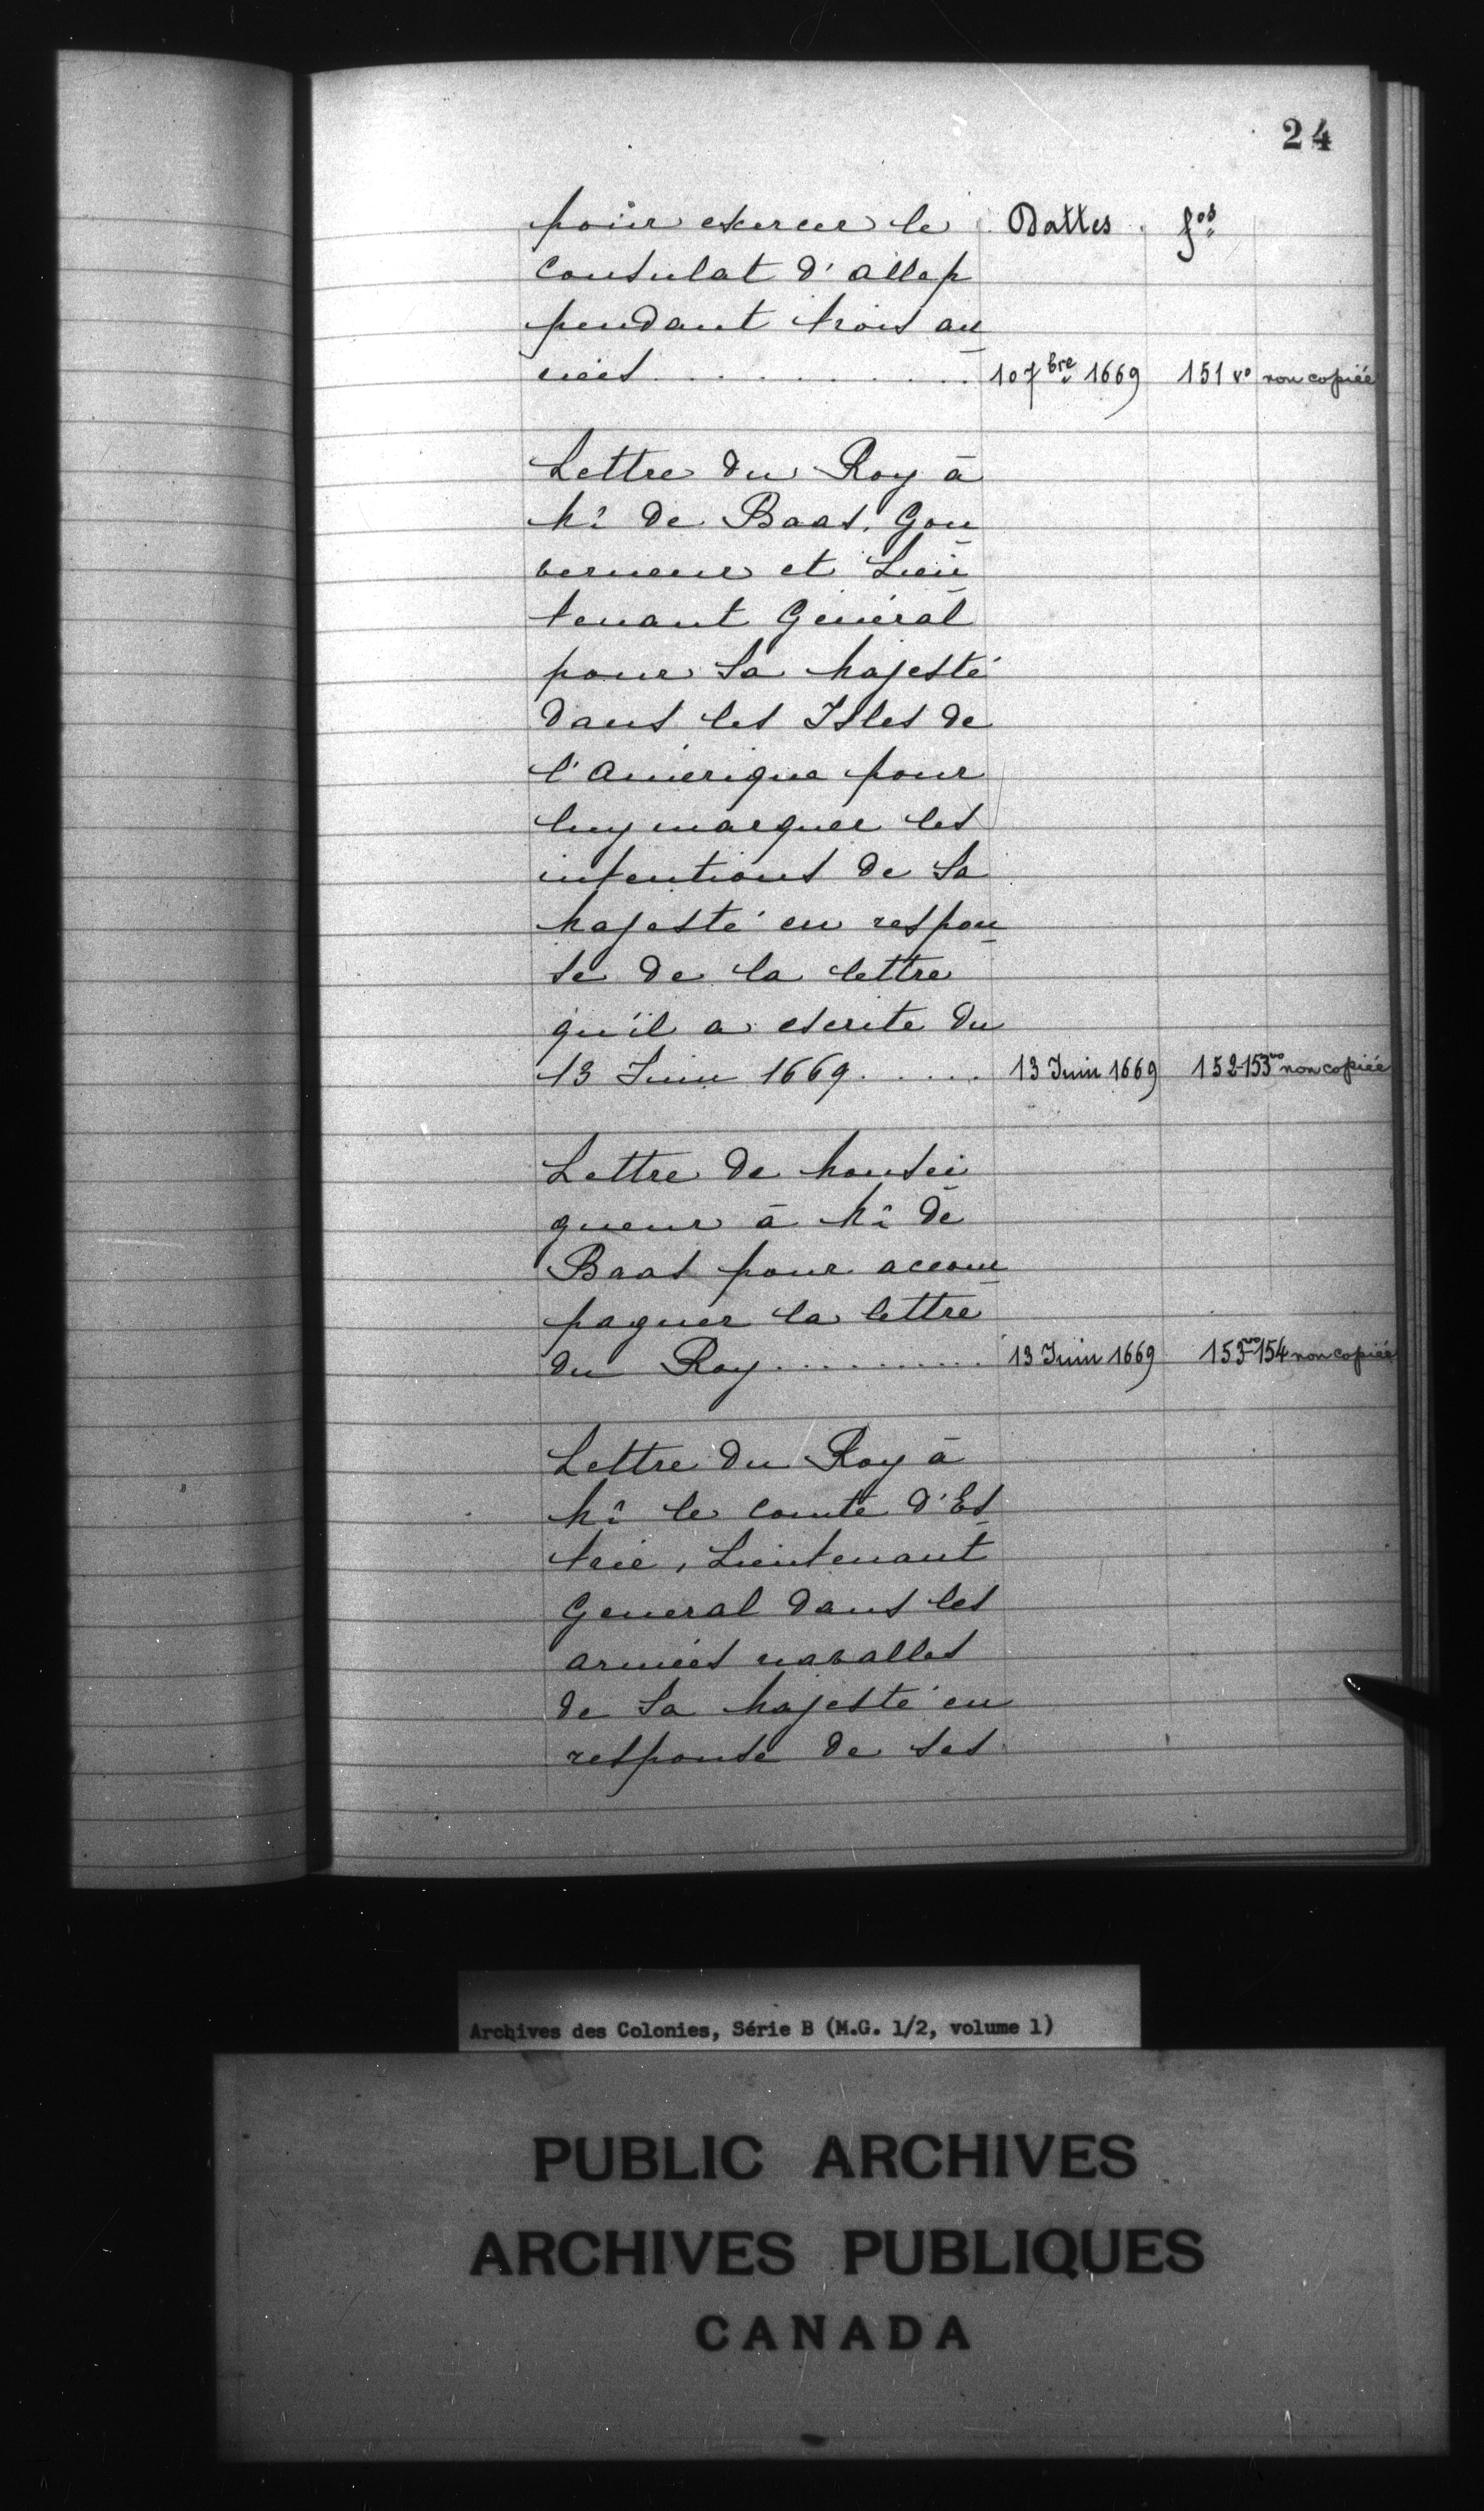 24
pour exercer le Dattes. fos
Consulat d'allep
pendant trois an
nées............ 10 7bre 1669 151 vo non copiée
Lettre du Roy à
Mr de Baas, Gou
verneur et Lieu
tenant Général
pour Sa Majesté
dans les Isles de
l'Amérique pour
luy marquer les
intentions de Sa
Majesté en respon
se de la lettre
qu'il a escrite du
13 Juin 1669...... 13 Juin 1669 152-153vo non copiée
Lettre de Monsei
gneur à Mr de
Baas pour accom
pagner la lettre
du Roy............ 13 Juin 1669 153vo-154 non copiée
Lettre du Roy à
Mr le Comte d'Es
trée, Lieutenant
General dans les
armées navalles
de Sa Majesté en
response de ses
Archives des Colonies, Série B (M.G. 1/2, volume 1)
PUBLIC ARCHIVES
ARCHIVES PUBLIQUES
CANADA